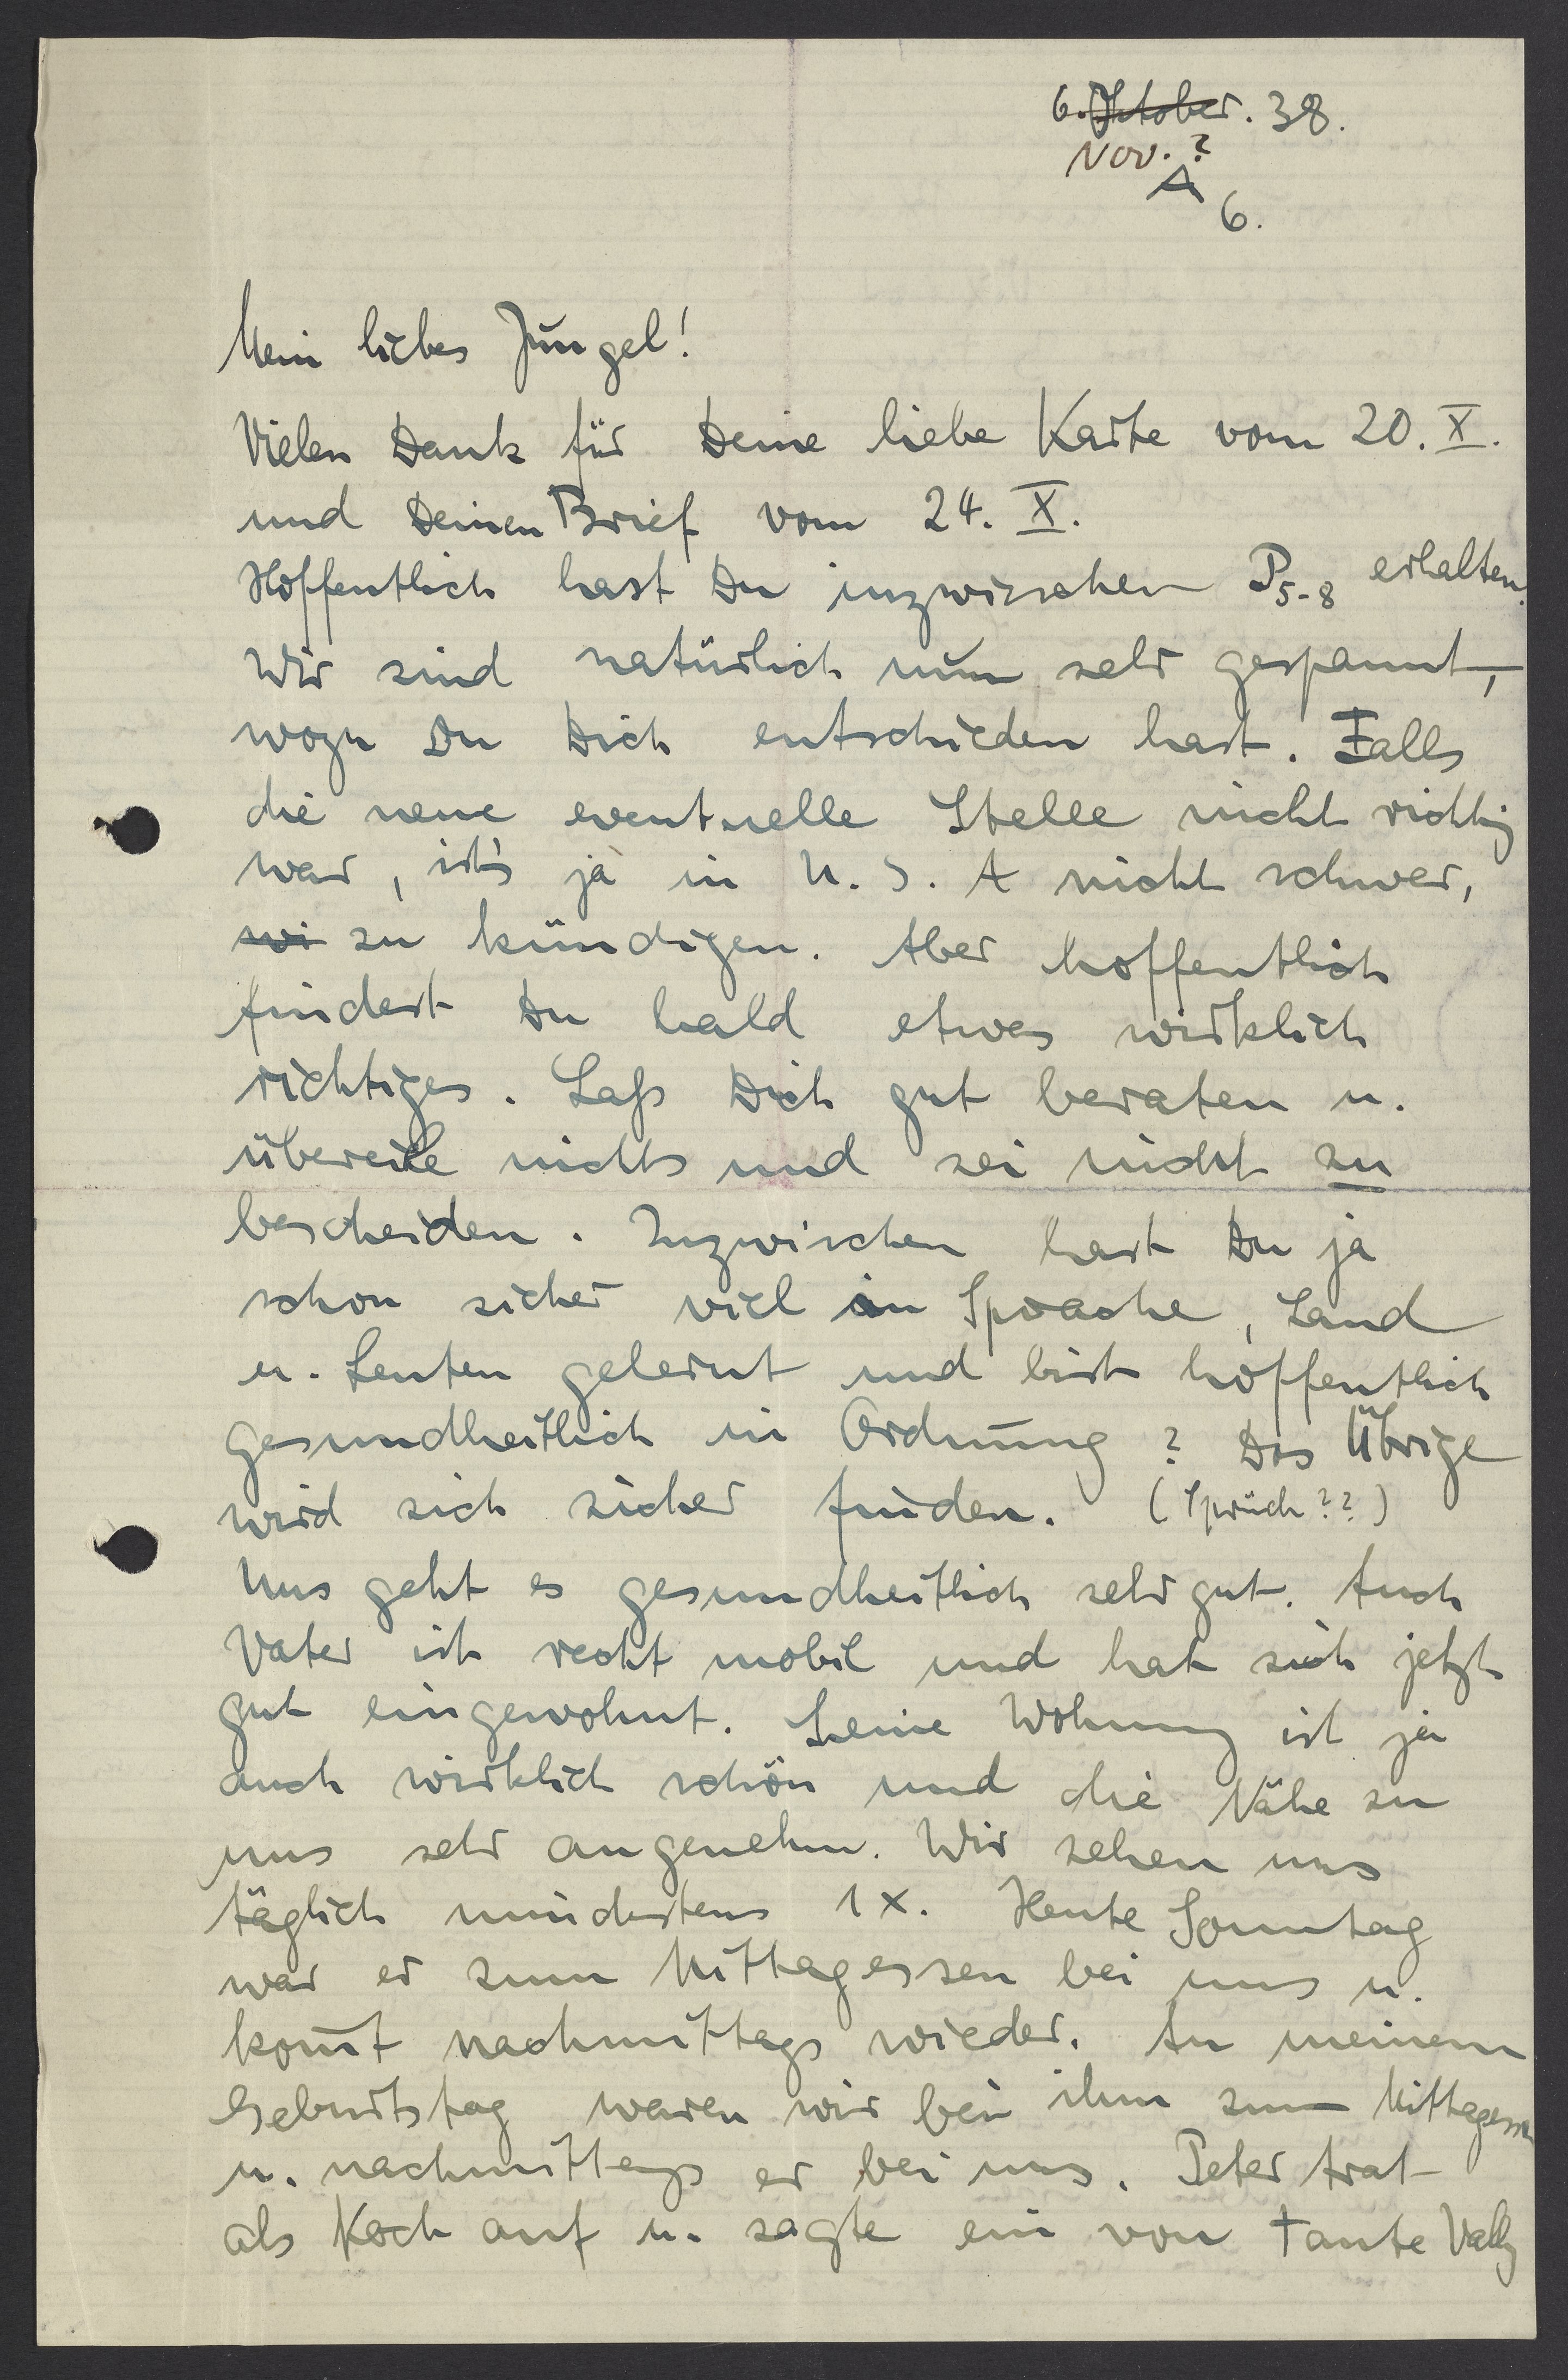 6. Oktober. 38.
Nov. ?
A
6.
Mein liebes Jungel!
Vielen Dank für Deine liebe Karte vom 20. X.
und Deinen Brief vom 24. X.
Hoffentlich hast Du inzwischen P5-8 erhalten.
Wir sind natürlich nun sehr gespannt,
wozu Du Dich entschieden hast. Falls
die neue eventuelle Stelle nicht richtig
war, ist's ja in U. S. A nicht schwer,
wi zu kündigen. Aber hoffentlich
findest Du bald etwas wirklich
richtiges. Laß Dich gut beraten u.
übereile nichts und sei nicht zu
bescheiden. Inzwischen hast Du ja
schon sicher viel in Sprache, Land
u. Leuten gelernt und bist hoffentlich
gesundheitlich in Ordnung? Das Übrige
wird sich sicher finden. (Sprüch??)
Uns geht es gesundheitlich sehr gut. Auch
Vater ist recht mobil und hat sich jetzt
gut eingewohnt. Seine Wohnung ist ja
auch wirklich schön und die Nähe zu
uns sehr angenehm. Wir sehen uns
täglich mindestens 1x. Heute Sonntag
war er zum Mittagessen bei uns u.
kom̄t nachmittags wieder. An meinem
Geburtstag waren wir bei ihm zum Mittagessen
u. nachmittags er bei uns. Peter trat
als Koch auf u. sagte ein von Tante Vally